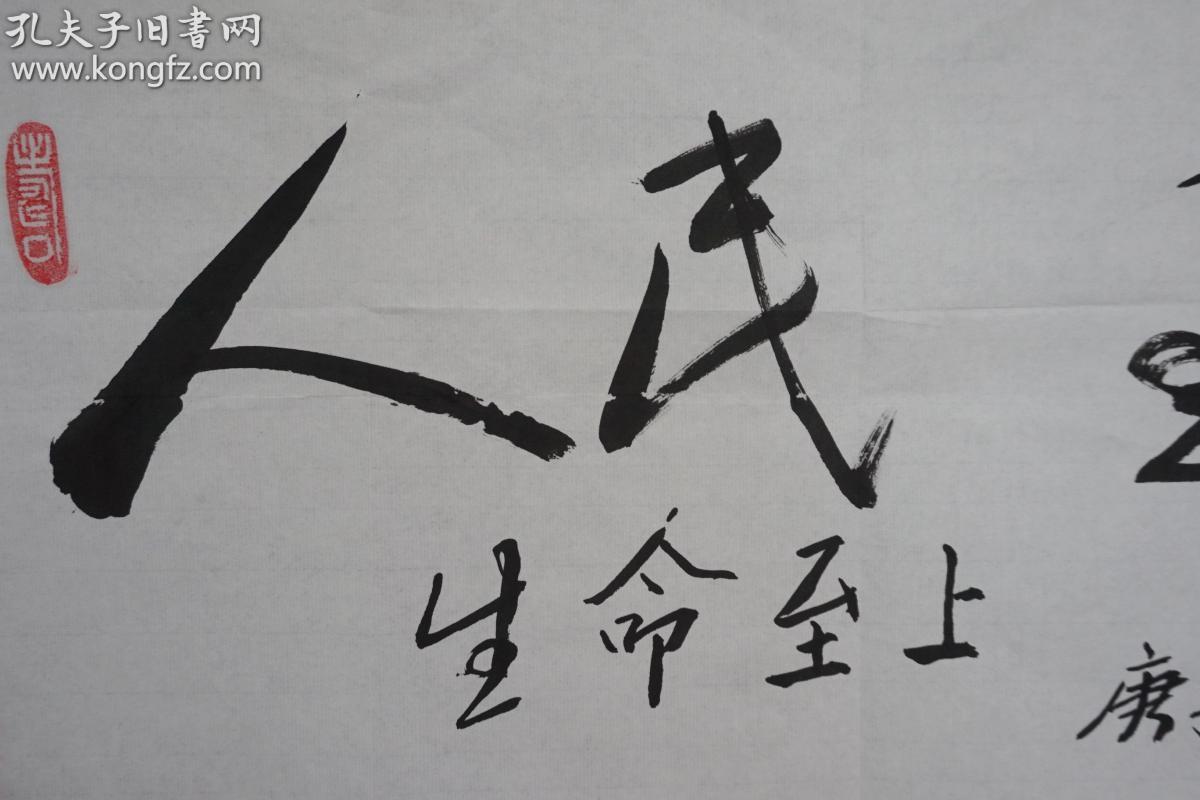 孔夫子旧書网
www.kongfz.com
人民
生命至上
庚